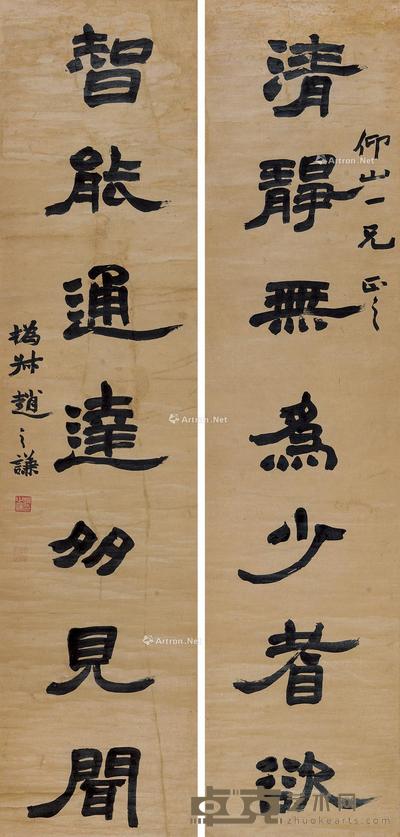 清靜無為少耆欲
仰山一兄正之
智能通達多見聞
撝叔趙之謙
Artron.Net
Artron.Net
Artron.Net
卓克艺术网
zhuokearts.com